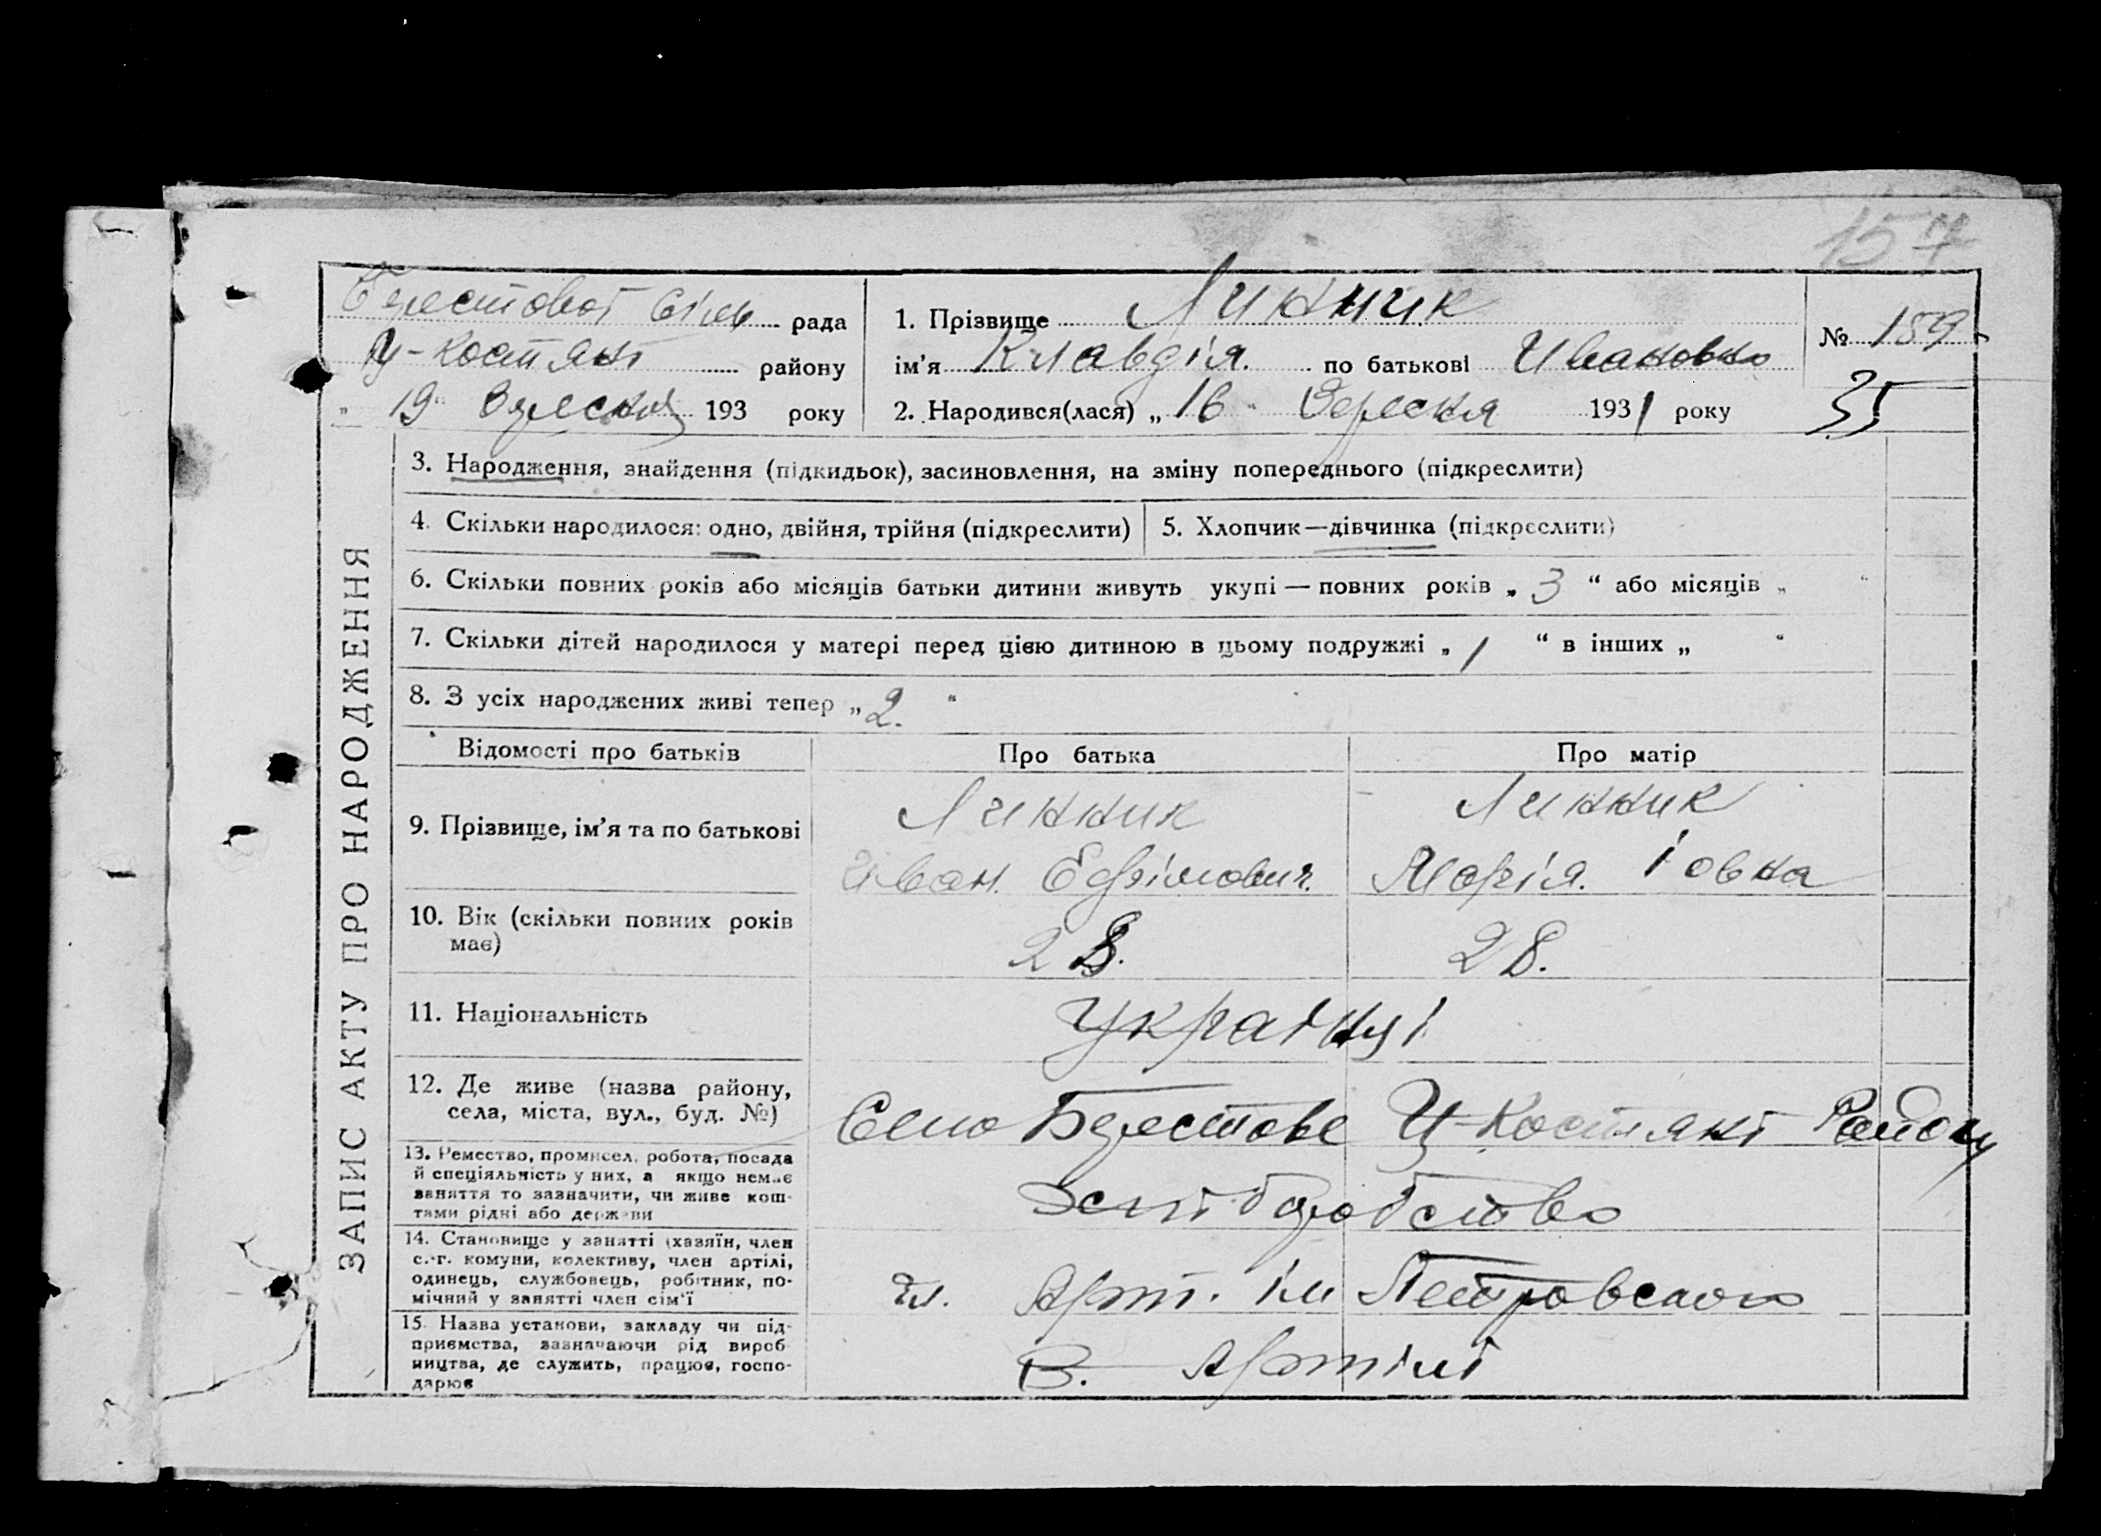 157
Берестової сіль рада
Ц-Костянт району
„ 19 " Вересня 193 року
1. Прізвище Линник
ім'я Клавдія. по батькові Ивановна
2. Народився(лася) „ 16 " Вересня 1931 року
№ 159
35
ЗАПИС АКТУ ПРО НАРОДЖЕННЯ
3. Народження, знайдення (підкидьок), засиновлення, на зміну попереднього (підкреслити)
4. Скільки народилося: одно, двійня, трійня (підкреслити)
5. Хлопчик—дівчинка (підкреслити)
6. Скільки повних років або місяців батьки дитини живуть укупі — повних років „ 3 “ або місяців „ “
7. Скільки дітей народилося у матері перед цією дитиною в цьому подружжі „ 1 “ в інших „ “
8. З усіх народжених живі тепер „ 2. “
Відомості про батьків Про батька Про матір
9. Прізвище, ім'я та по батькові
Линник
Иван. Ефімович.
Линник
Марія. Іовна
10. Вік (скільки повних років
має)
28. 28.
11. Національність
Українці
12. Де живе (назва району,
села, міста, вул., буд. №)
Село Берестове Ц-Костянт Району
13. Ремество, промисел, робота, посада
й спеціяльність у них, а якщо немає
заняття то зазначити, чи живе кош-
тами рідні або держави
14. Становище у занятті (хазяїн, член
с.-г. комуни, колективу, член артілі,
одинець, службовець, робітник, по-
мічний у занятті член сім'ї
чл. Арт. Ім Петровского
15. Назва установи, закладу чи під-
приємства, зазначаючи рід вироб
ництва, де служить, працює, госпо-
дарює
В. Артілі